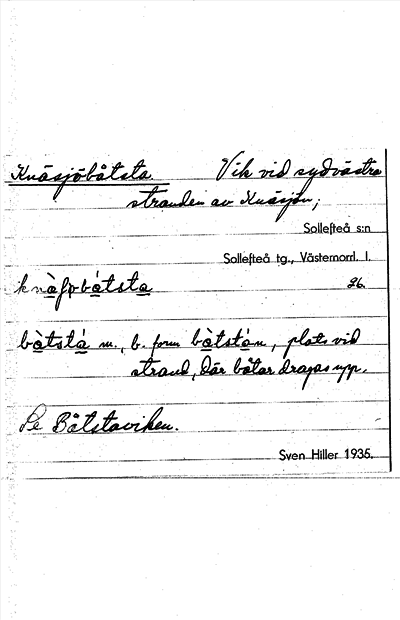 Knäsjöbåtsta. Vik vid sydvästra
stranden av Knäsjön;
Sollefteå s:n
Sollefteå tg., Västernorrl. l.
26.
bȧ̀tstá m., b. form bȧ̀tstán, plats vid
strand, där båtar dragas upp.
Se Båtstaviken.
Sven Hiller 1935.